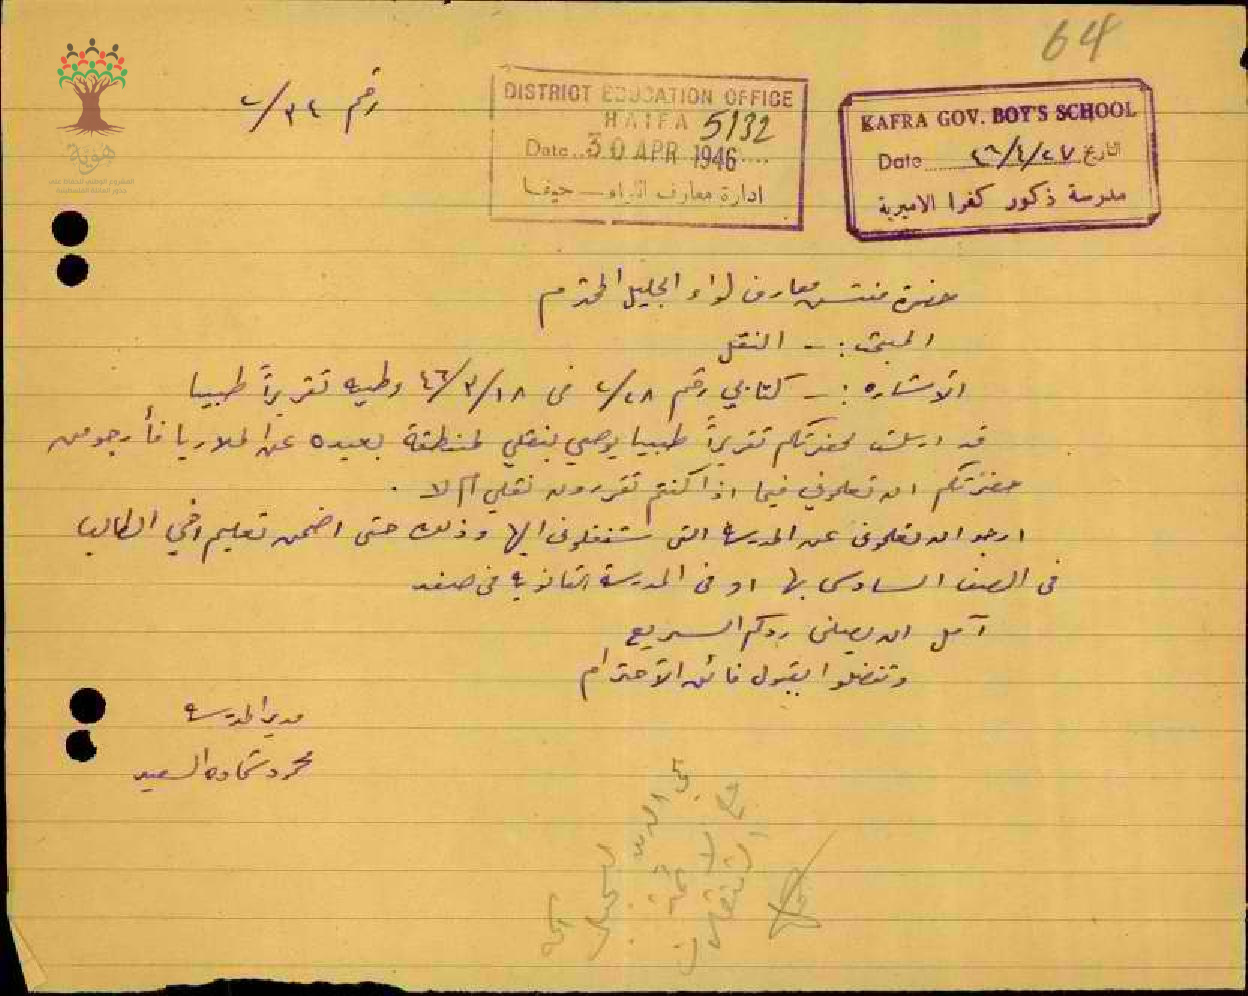 64
رقم ٣٤/٧
DISTRICT EDUCATION OFFICE
HAIFA 5132
Date.. 30 APR 1946....
ادارة معارف اللواء — حيفا
KAFRA GOV. BOY'S SCHOOL
Date ٤٦/٤/٢٧ التاريخ
مدرسة ذكور كفرا الاميرية
هويّة
المشروع الوطني للحفاظ على
جذور العائلة الفلسطينية
حضرة مفتش معارف لواء الجليل المحترم
المبحث :- النقل
الاشاره :- كتابي رقم ٢٨/٧ في ٤٦/٣/١٨ وطيه تقريراً طبيا
قد ارسلت لحضرتكم تقريراً طبيا يوصي بنقلي لمنطقة بعيده عن الملاريا فأرجو من
حضرتكم ان تعلموني فيما اذا كنتم تقررون نقلي ام لا .
ارجو ان تعلموني عن المدرسه التي ستنقلوني اليها وذلك حتى اضمن تعليم اخي الطالب
في الصف السادس بها او في المدرسة الثانويه في صفد
آمل ان يصلني ردكم السريع
وتفضلوا بقبول فائق الاحترام
مدير المدرسه
محمود شحاده السعيد